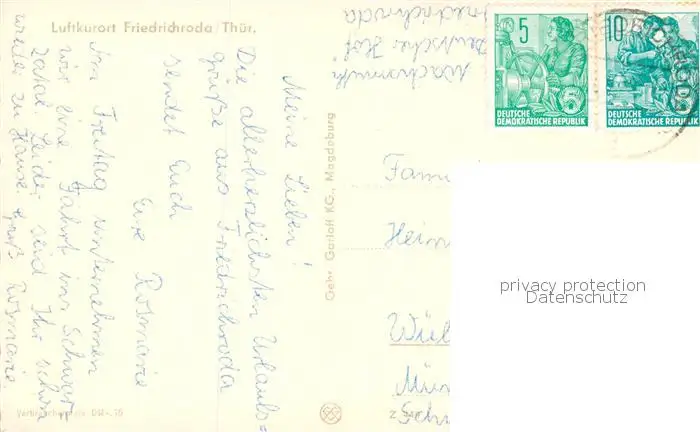 Luftkurort Friedrichroda/Thür.
Meine Lieben!
Die allerherzlichsten Urlaubs=
grüße aus Friedrichroda
sendet Euch
Eure Rosmarie
Am Freitag unternehmen
wir eine Fahrt ins Schwarz
zatal. Leider seid Ihr schon
wieder zu Hause. Gruß Rosmarie
Deutscher Hof
Friedrichroda
Gebr. Garloff KG., Magdeburg
5
DEUTSCHE
DEMOKRATISCHE REPUBLIK
10
DEUTSCHE
DEMOKRATISCHE REPUBLIK
Fam
Hein
privacy protection
Datenschutz
Verbraucherpreis DM -,15
Z